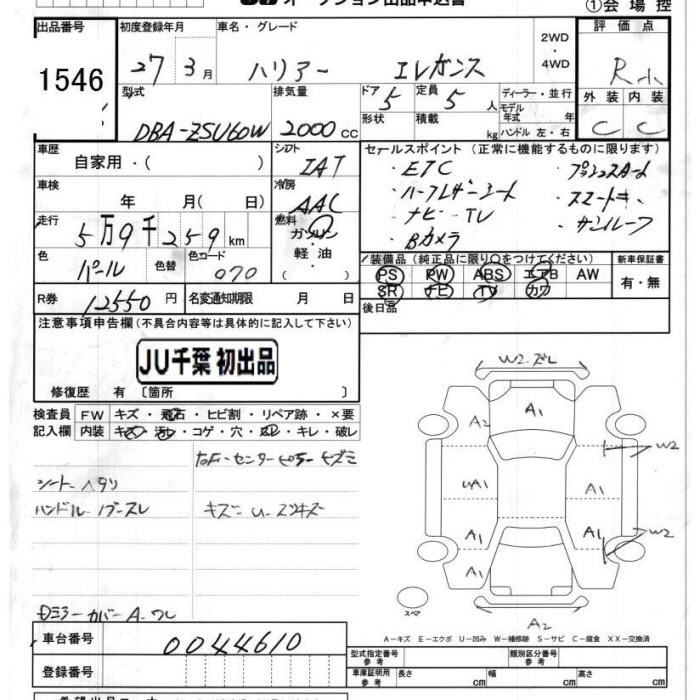 オークション出品申込書
①会場控
出品番号 初度登録年月 車名・グレード 2WD ・ 4WD 評価点
1546 27 3月 ハリアー エレガンス R
型式 排気量 ドア 定員 ディーラー・並行 外装 内装
DBA-ZSU60W 2000cc 5 5人 モデル年式 年 C C
形状 積載 kg ハンドル 左・右
車歴 シフト セールスポイント (正常に機能するものに限ります)
自家用・( ) IAT ・ETC ・プッシュスタート
車検 冷房 ・ハーフレザーシート ・スマートキー
年 月( 日) AAC ・ナビ・TV ・サンルーフ
走行 燃料 ・Bカメラ
5万9千259km ガソリン
色 色替 色コード 軽油
パール 070 ( )
装備品 (純正品に限り○をつけてください) 新車保証書
PS PW ABS エアB AW 有・無
SR ナビ TV カワ
R券 12550円 名変通知期限 月 日 後日品
注意事項申告欄 (不具合内容等は具体的に記入して下さい)
JU千葉 初出品
修復歴 有 〔箇所 〕
検査員記入欄 FW キズ・飛石・ヒビ割・リペア跡・×要
内装 キズ・汚れ・コゲ・穴・スレ・キレ・破レ
シート ヘタリ
ハンドル
キズ・U・
カバーA・ワレ
W2.ズレ
A2 A1
W2
UA1 A1
A1 A1 W2
A1
スペア
A2
A−キズ E−エクボ U−凹み W−補修跡 S−サビ C−腐食 XX−交換済
車台番号 0044610
登録番号
型式指定番号 参考 類別区分番号 参考
車庫証明用 参考 長さ cm 幅 cm 高さ cm